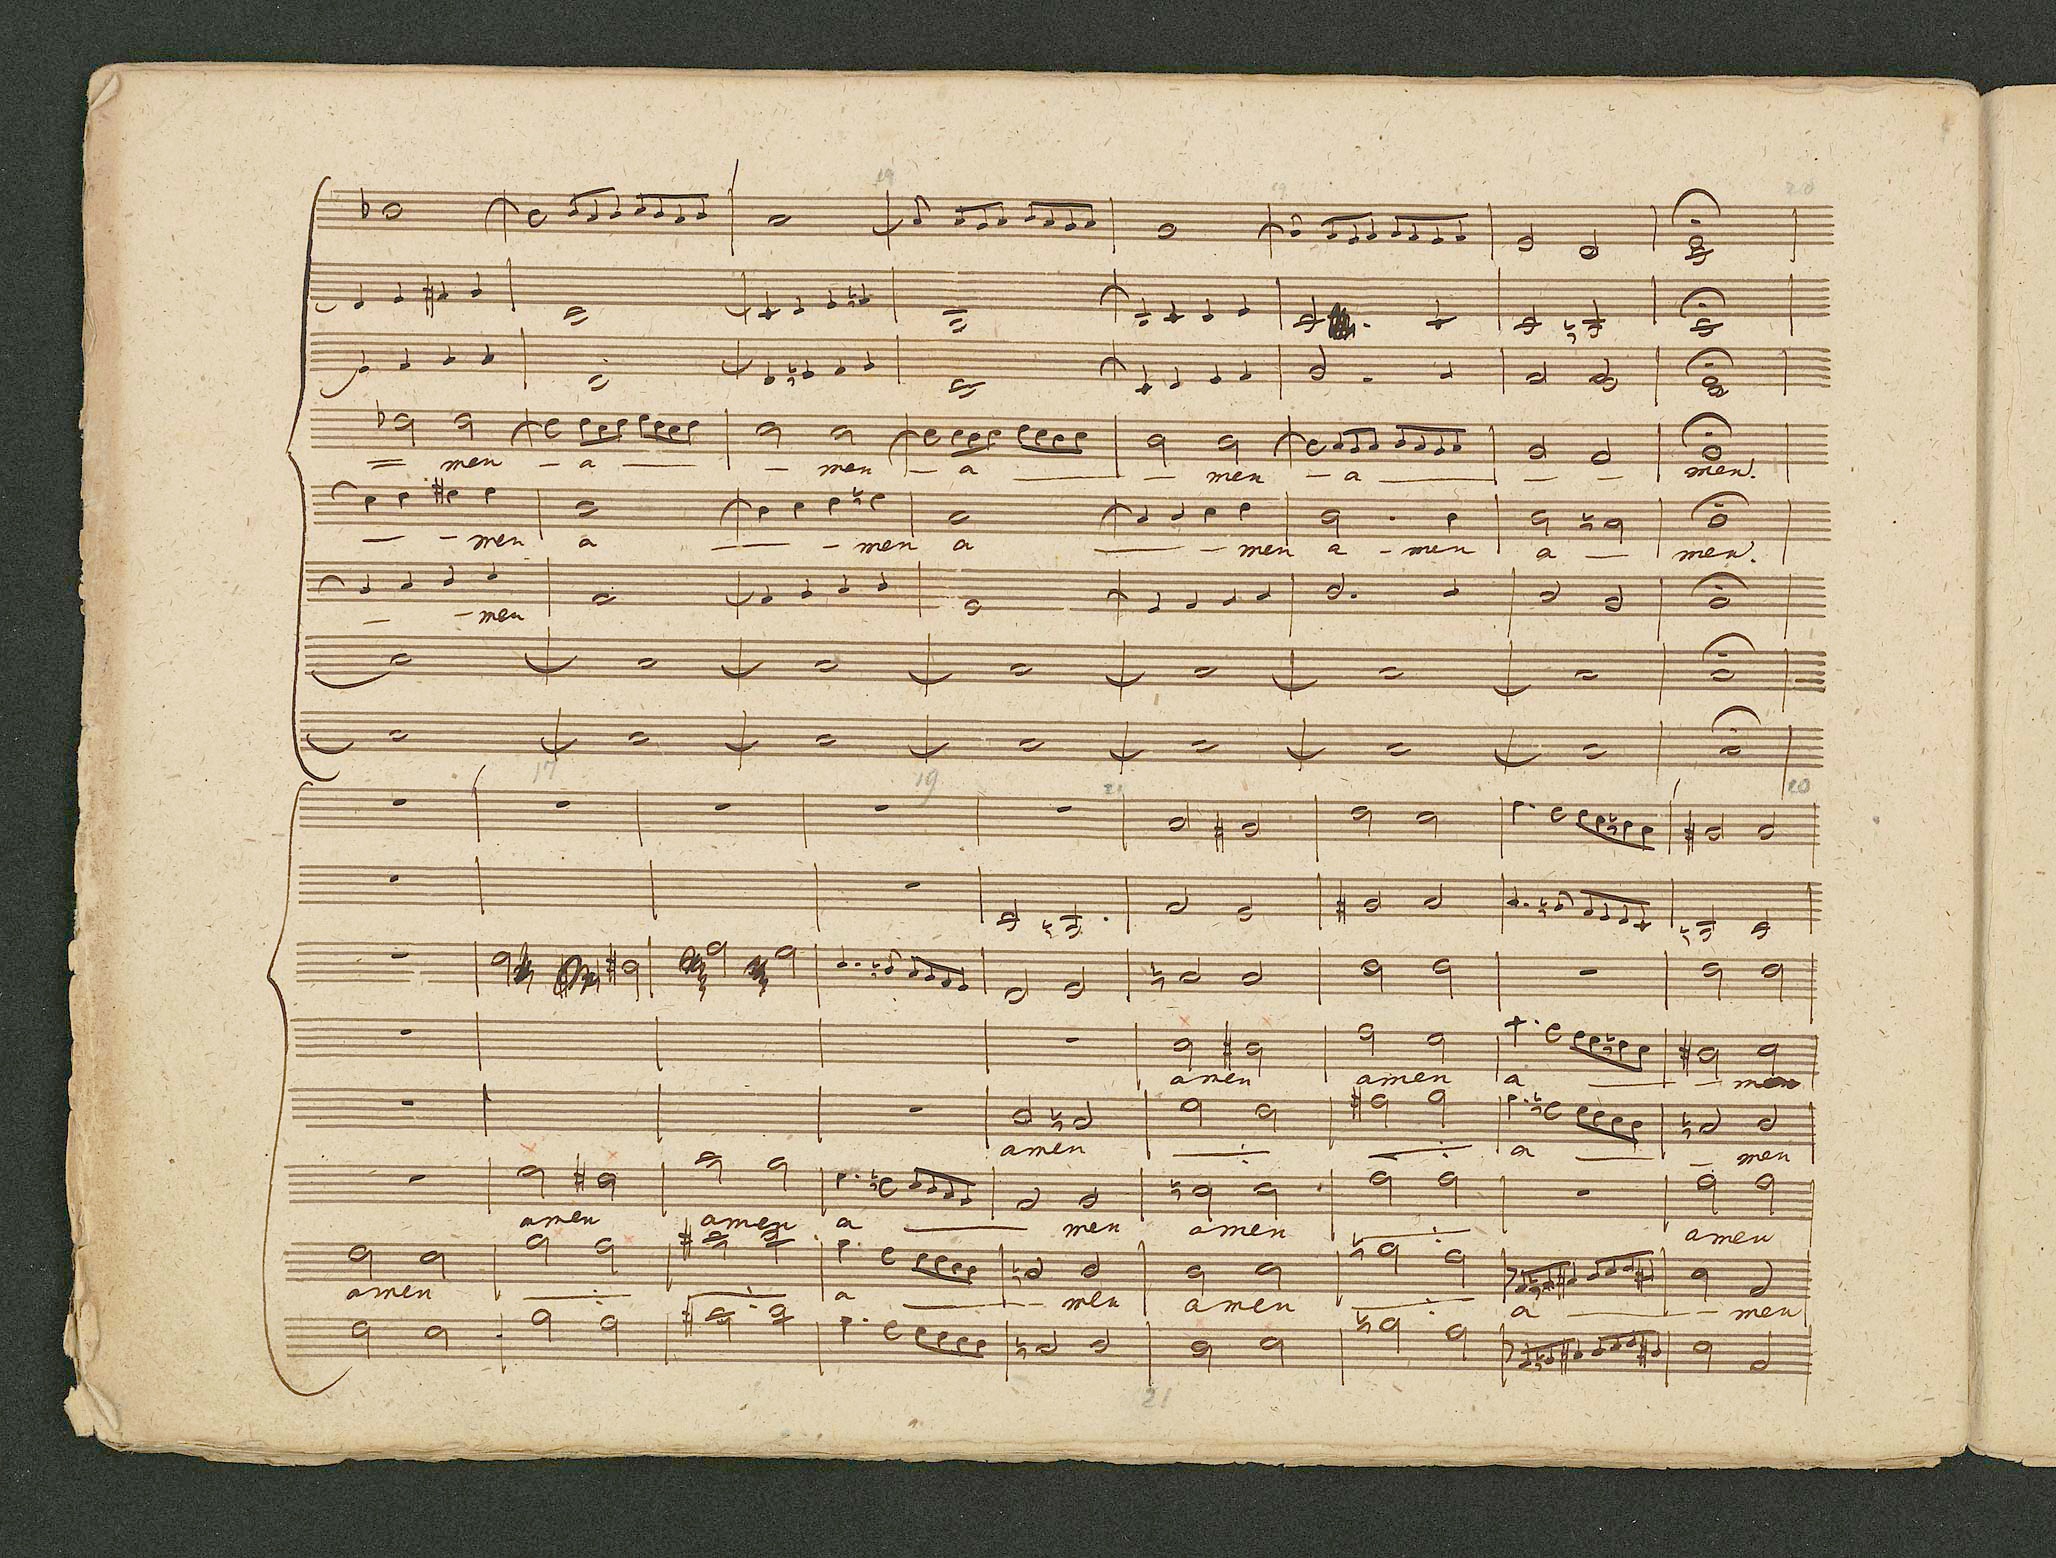 19 19 20
= men - a — - men - a — - men - a — - - men.
— - men a — - men a — - men a - men a — men.
— - men
17 19 21 20
amen amen a — - men
amen a — - men
amen amen a — men amen amen
amen a — - men amen a — - men
21